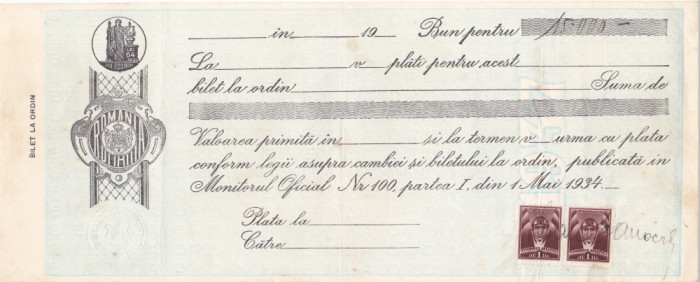 BILET LA ORDIN
LEI 64
ROMANIA
in 19 Bun pentru 15.000 -
La v plăti pentru acest
bilet la ordin Suma de
Valoarea primită în și la termen v urma cu plata
conform legii asupra cambiei și biletului la ordin, publicată în
Monitorul Oficial Nr 100, partea I, din 1 Mai 1934.
Plata la
Către
1 LEU 1 LEU